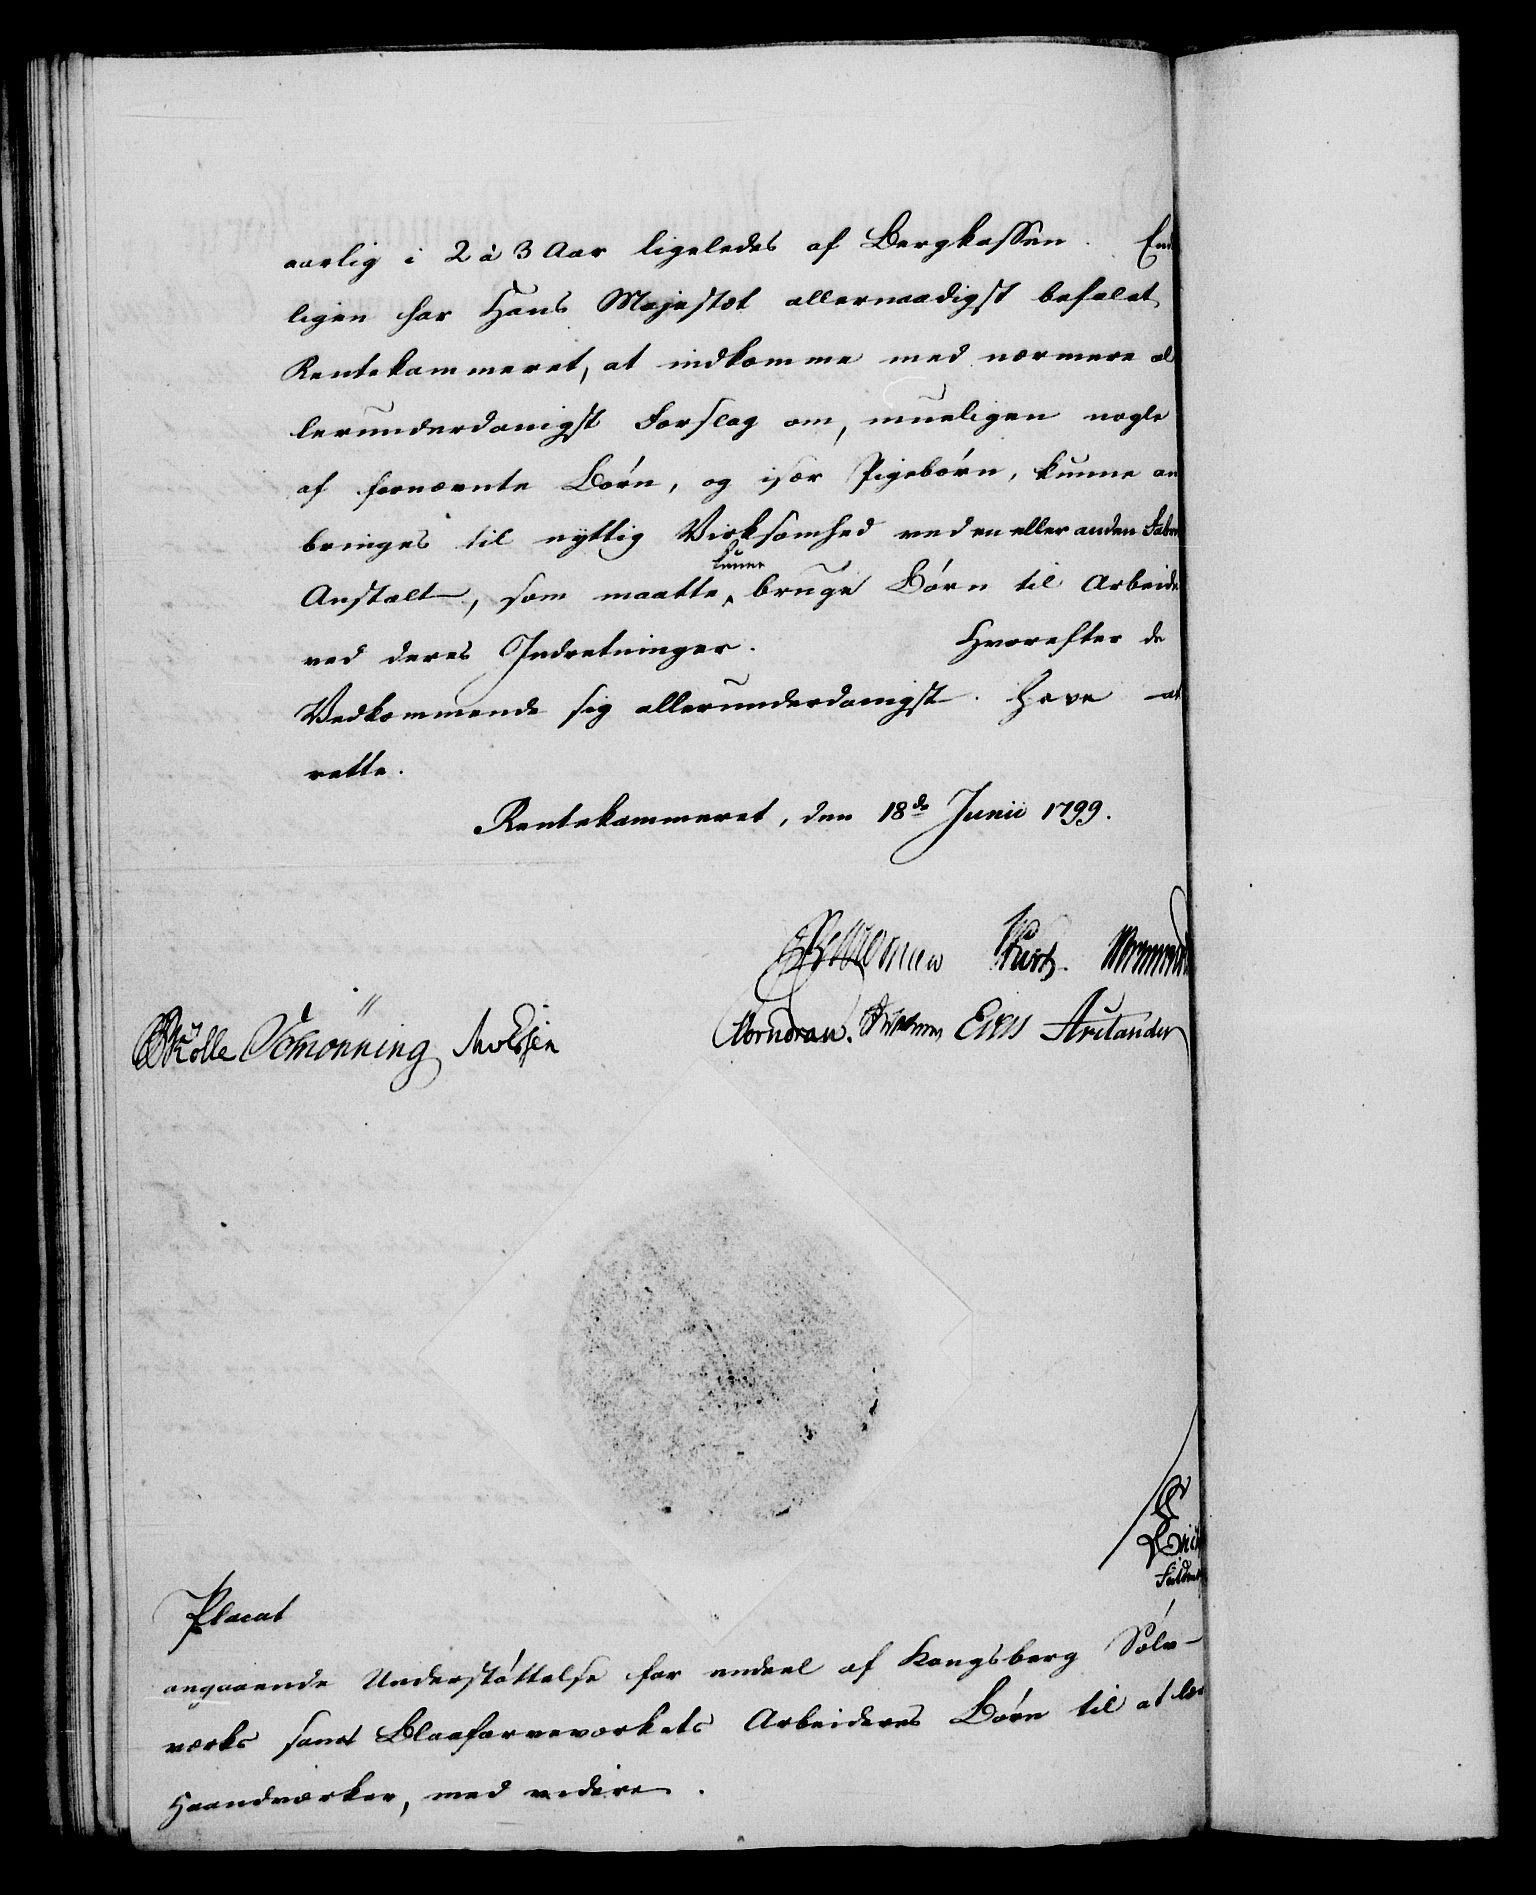 aarlig i 2 à 3 Aar ligeledes af Bergkassen. End
ligen har Hans Majestæt allernaadigst befalet
Rentekammeret, at indkomme med nærmere al
lerunderdanigst Forslag om, mueligen nogle
af fornævnte Børn, og især Pigebørn, kunne an
bringes til nyttig Virksomhed ved en eller anden Fabr
Anstalt, som maatte kunne bruge Børn til Arbeide
ved deres Indretninger. Hvorefter de
Vedkommende sig allerunderdanigst have at
rette.
Rentekammeret, den 18de Junii 1799.
Wormskiold
Rølle Schønning Knudsen Arctander
Placat
angaaende Understøttelse for endeel af Kongsberg Sølv-
værks samt Blaafarveværkets Arbeideres Børn til at lær
Haandværker, med videre.